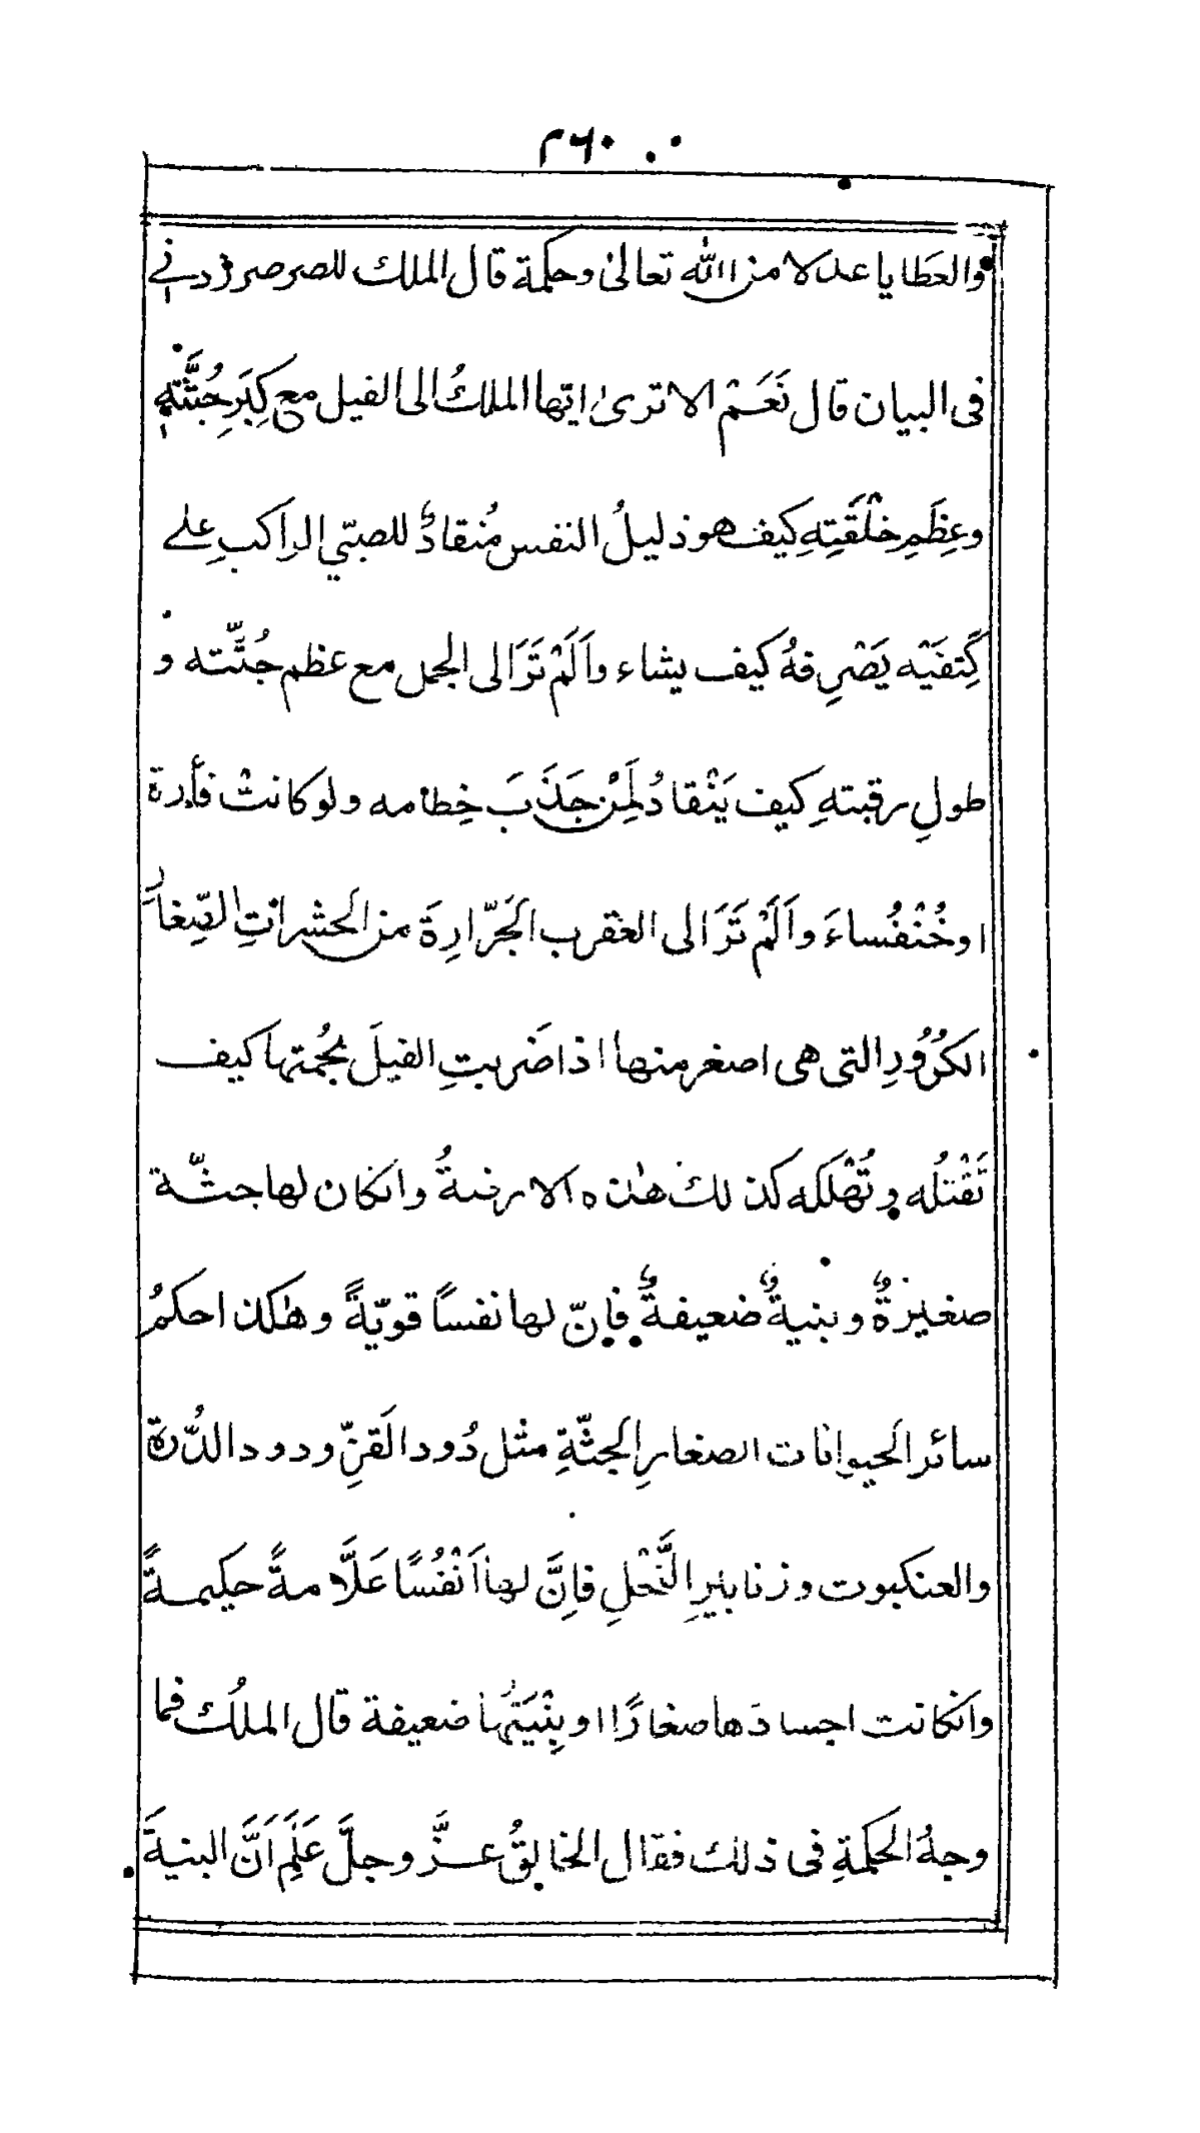 ۲۶۰
والعطايا عدلا من الله تعالىٰ وحكمة قال الملك للصرصر زدني
فى البيان قال نَعَمْ الا ترىٰ ايّها الملكُ الى الفيل مع كِبَرِ جُثَّتِهٖ
وعِظَمِ خلْقَتِهِ كيف هو ذليلُ النفس مُنقادٌ للصبّي الراَكبِ علے
كَِتفَيْه يَصْرِفهُ كيف يشاء واَلَمْ تَرَ الى الجمل مع عظم جُثَّته و
طولِ رقبتهِ كيف يَنْقادُ لِمَنْ جَذَبَ خِطامه ولو كانتْ فأرة
او خُنْفُساءَ واَلَمْ تَرَ الى العقرب الجَرّارِةَ من الحشراتِ الصِّغارِ
الكرُوُرِ التى هى اصغر منها اذا ضَربتِ الفيلَ بحُمتها كيف
تَقْتُلُه وتُهْلكه كذلك هٰذه الارضةُ وانكان لها جثّة
صغيرةٌ وبنيةٌ ضعيفةٌ فإنّ لها نفسًا قويّةً وهٰكذا حكمُ
سائر الَحيوانات الصغارِ الجثّةِ مثل دُود القزِّ ودود الدُّرة
والعنكبوت وزنابيرِ النَّحْلِ فاِنَّ لها اَنْفُسًا عَلَّامةً حكيمةً
وانكانت اجسادَها صغارًا او بِنْيَتُها ضعيفة قال الملُك فما
وجهُ الحكمةِ فى ذلك فقال الخالِقُ عزَّ وجلَّ عَلِمَ اَنَّ البنيةَ